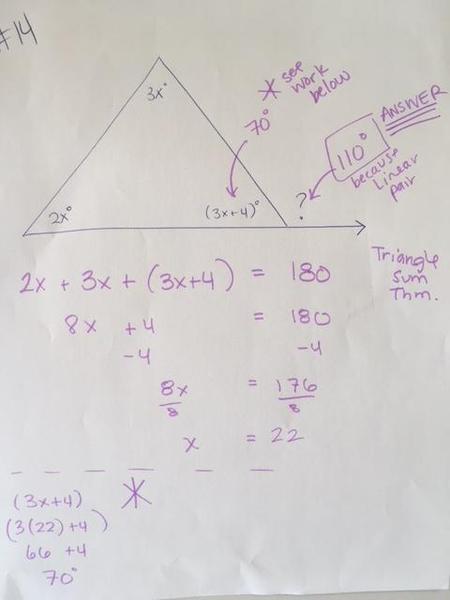 #14
3x°
* see
work
below
70°
ANSWER
110°
because
Linear
pair
?
2x°
(3x+4)°
2x + 3x + (3x+4) = 180
Triangle
Sum
Thm.
8x + 4 = 180
-4 -4
8x = 176
8 8
x = 22
(3x+4) *
(3(22)+4)
66 +4
70°